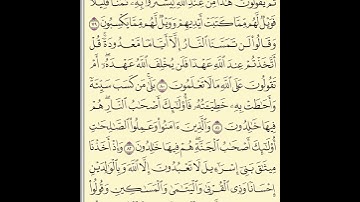 ثُمَّ يَقُولُونَ هَٰذَا مِنْ عِندِ ٱللَّهِ لِيَشْتَرُوا۟ بِهِۦ ثَمَنًا قَلِيلًا
فَوَيْلٌ لَّهُم مِّمَّا كَتَبَتْ أَيْدِيهِمْ وَوَيْلٌ لَّهُم مِّمَّا يَكْسِبُونَ ٧٩
وَقَالُوا۟ لَن تَمَسَّنَا ٱلنَّارُ إِلَّآ أَيَّامًا مَّعْدُودَةً قُلْ
أَتَّخَذْتُمْ عِندَ ٱللَّهِ عَهْدًا فَلَن يُخْلِفَ ٱللَّهُ عَهْدَهُۥٓ أَمْ
تَقُولُونَ عَلَى ٱللَّهِ مَا لَا تَعْلَمُونَ ٨٠ بَلَىٰ مَن كَسَبَ سَيِّئَةً
وَأَحَٰطَتْ بِهِۦ خَطِيٓـَٔتُهُۥ فَأُو۟لَٰٓئِكَ أَصْحَٰبُ ٱلنَّارِ هُمْ
فِيهَا خَٰلِدُونَ ٨١ وَٱلَّذِينَ ءَامَنُوا۟ وَعَمِلُوا۟ ٱلصَّٰلِحَٰتِ
أُو۟لَٰٓئِكَ أَصْحَٰبُ ٱلْجَنَّةِ هُمْ فِيهَا خَٰلِدُونَ ٨٢ وَإِذْ أَخَذْنَا
مِيثَٰقَ بَنِىٓ إِسْرَٰٓءِيلَ لَا تَعْبُدُونَ إِلَّا ٱللَّهَ وَبِٱلْوَٰلِدَيْنِ
إِحْسَانًا وَذِى ٱلْقُرْبَىٰ وَٱلْيَتَٰمَىٰ وَٱلْمَسَٰكِينِ وَقُولُوا۟